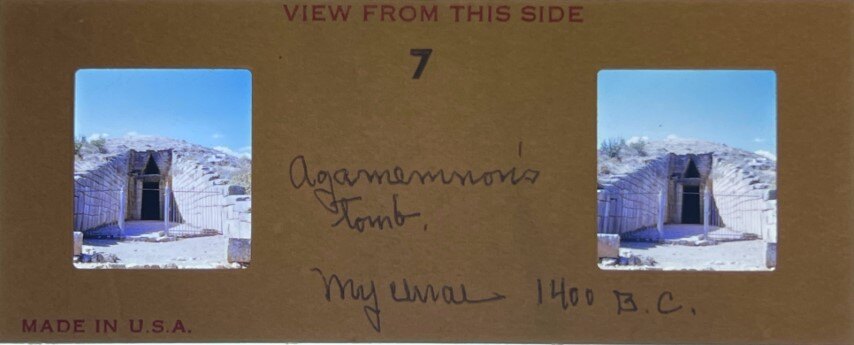 VIEW FROM THIS SIDE
7
Agamemnon's
tomb.
Mycenae 1400 B.C.
MADE IN U.S.A.